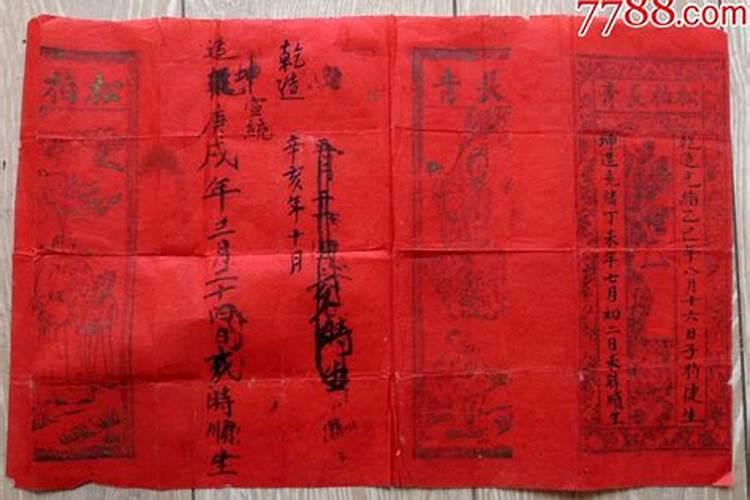 7788.com
松柏長青
乾造光緒乙巳年八月十六日子時建生
坤造光緒丁未年七月初二日未時順生
長青
乾造
宣統
辛亥年十月
時生
坤造
庚戌年月二十四日時順生
松柏